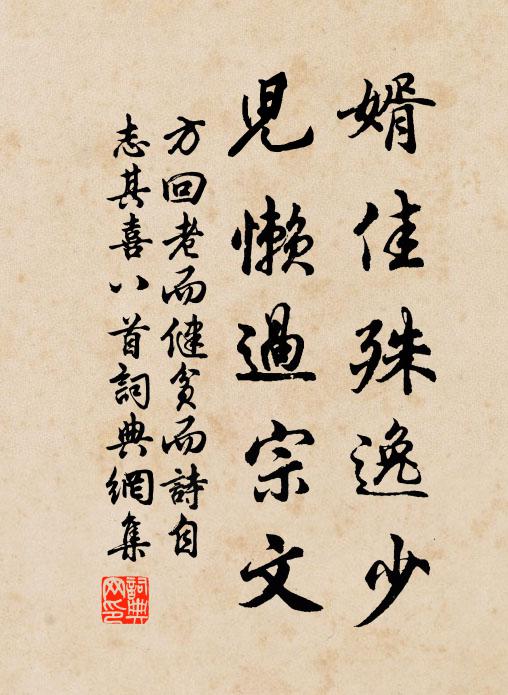 婿佳殊逸少
兒懶過宗文
方回老而健貧而詩自
志其喜八首詞典網集
詞典網印